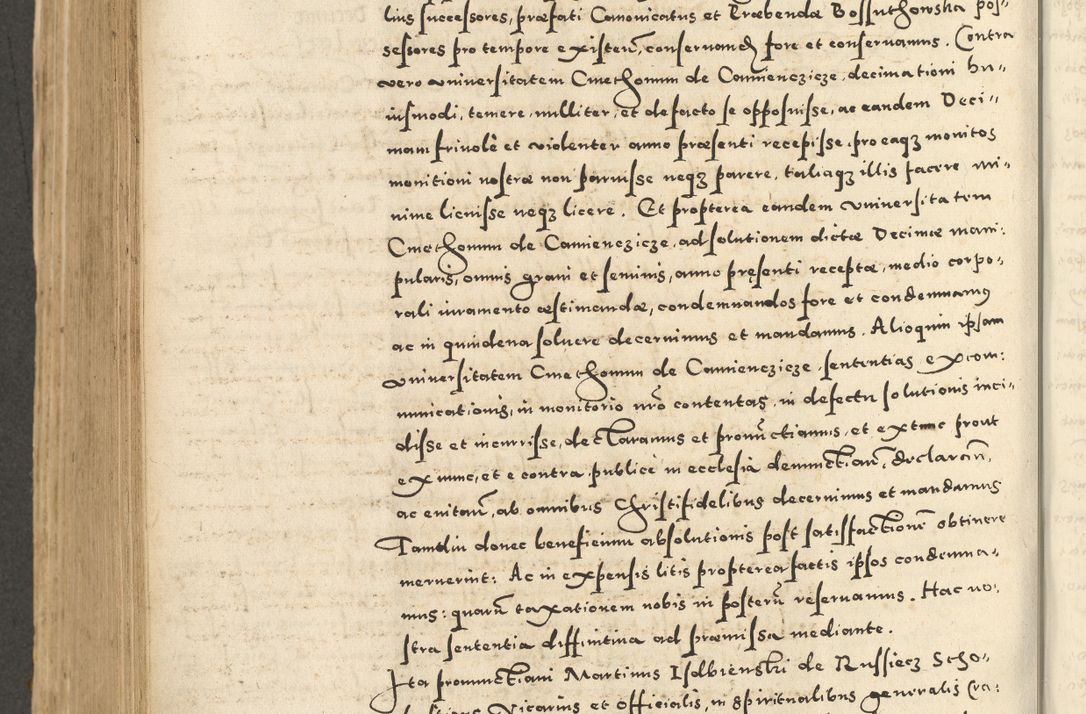 lius successores, præfati Canonicatus et Præbendæ Bossuthowska pos„
sessores pro tempore existeñ, conservandȝ fore et conservamus. Contra
vero universitatem Cmethonum de Camienczicze, decimationi hu„
iusmodi, temere, nulliter, et de facto se opposuisse, ac eandem Deci„
mam frivolè et violenter anno præsenti recepisse, pro eaqȝ monitos
monitioni nostræ non paruisse neqȝ parere, taliaqȝ illis facere mi„
nime licuisse neqȝ licere. Et propterea eandem universitatem
Cmethonum de Camienczicze, ad solutionem dictæ Decimæ mani:
pularis, omnis grani et seminis, anno pręsenti receptæ, medio corpo„
rali iuramento æstimandæ, condemnandos fore et condemnamus
ac in quindena solvere decernimus et mandamus. Alioquin ipsam
universitatem Cmethonum de Camienczicze, sententias excom:
municationis, in monitorio nr̃o contentas, in defectu solutionis inci„
disse et incurrisse, declaramus et pronũctiamus, et ex tunc prout
ex nunc, et e contra publicè in ecclesia denunctiañ, declarañ,
ac evitañ, ab omnibus Christifidelibus decernimus et mandamus
Tamdiu donec beneficium absolutionis post satisfactionẽ obtinere
meruerint: Ac in expensis litis propterea factis ipsos condemna„
mus: quarũ taxationem nobis in posterũ reservamus. Hac no:
stra sententia diffinitiva ad præmissa mediante.
Ita pronunctiavi Martinus Isdbienski de Russiecz Scho„
Vicarius et Officialis, in spiritualibus generalis Cra: